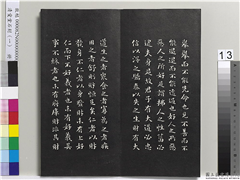 舉舉而不能先命也見不善而不
能退退而不能遠過也好人之所惡
惡人之所好是謂拂人之性菑必
逮夫身是故君子有大道必忠
信以得之驕泰以失之生財有大
道生之者衆食之者寡為之者疾
用之者舒則財恒足矣仁者以財
發身不仁者以身發財未有上好
仁而下不好義者也未有好義其
事不終者也未有府庫財非其財
13